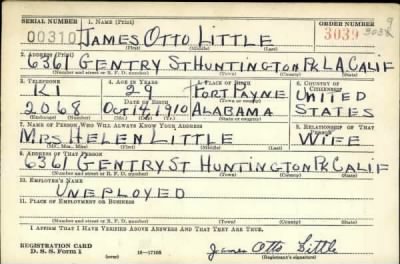 SERIAL NUMBER 1. NAME (Print) ORDER NUMBER
00310 JAMES OTTO LITTLE 3039
(First) (Middle) (Last)
2. ADDRESS (Print)
6361 GENTRY ST HUNTINGTON PK L A CALIF
(Number and street or R. F. D. number) (Town) (County) (State)
3. TELEPHONE 4. AGE IN YEARS 5. PLACE OF BIRTH 6. COUNTRY OF CITIZENSHIP
KI 29 FORT PAYNE UNITED
DATE OF BIRTH (Town or county)
2068 OCT 14, 1910 ALABAMA STATES
(Exchange) (No.) (Mo.) (Day) (Yr.) (State or country)
7. NAME OF PERSON WHO WILL ALWAYS KNOW YOUR ADDRESS 8. RELATIONSHIP OF THAT PERSON
MRS. HELEN LITTLE WIFE
(Mr., Mrs., Miss) (First) (Middle) (Last)
9. ADDRESS OF THAT PERSON
6361 GENTRY ST HUNTINGTON PK CALIF
(Number and street or R. F. D. number) (Town) (County) (State)
10. EMPLOYER'S NAME
UNEPLOYED
11. PLACE OF EMPLOYMENT OR BUSINESS
(Number and street or R. F. D. number) (Town) (County) (State)
I AFFIRM THAT I HAVE VERIFIED ABOVE ANSWERS AND THAT THEY ARE TRUE.
REGISTRATION CARD
D. S. S. Form 1 (over) 16—17105 James Otto Little
(Registrant's signature)